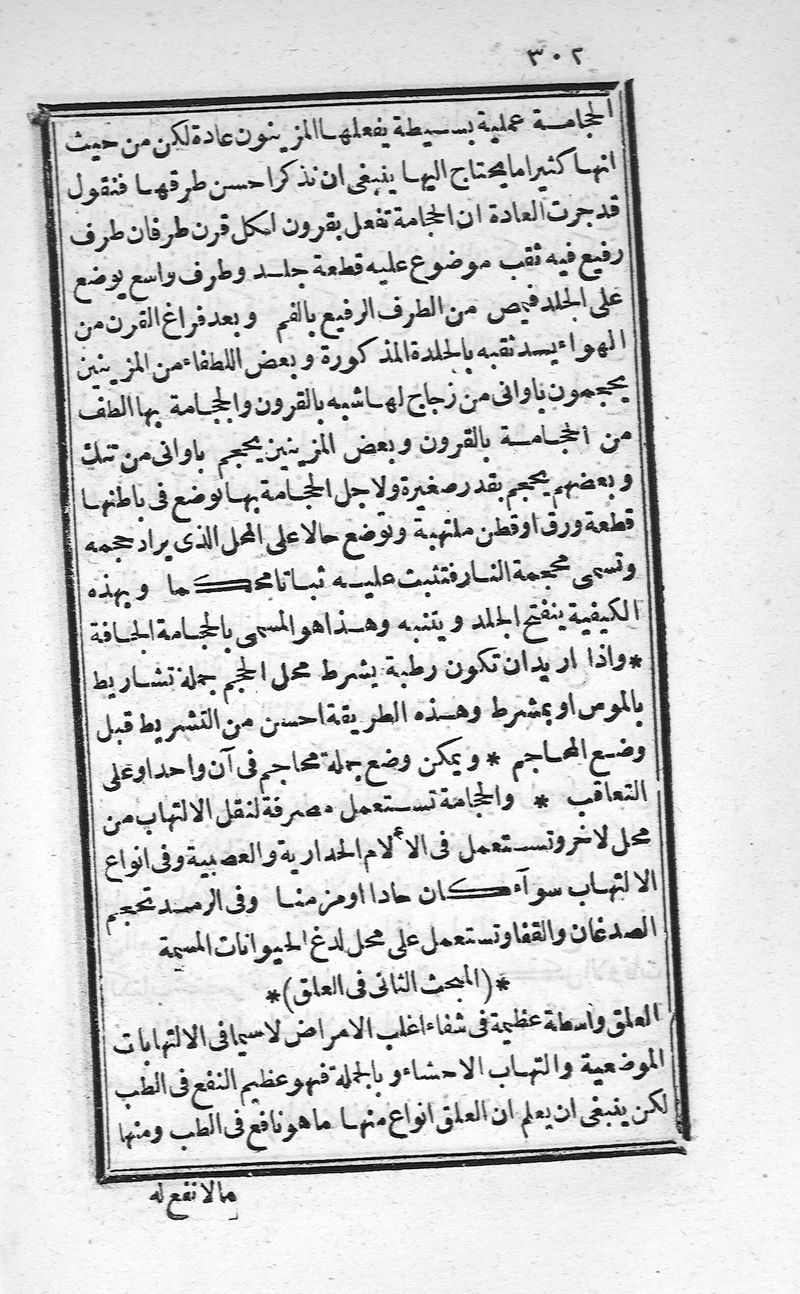 ٣٠٢
الحجامة عملية بسيطة يفعلها المزينون عادة لكن من حيث
انها كثيرا ما يحتاج اليها ينبغى ان نذكر احسن طرقها فنقول
قد جرت العادة ان الحجامة تفعل بقرون لكل قرن طرفان طرف
رفيع فيه ثقب موضوع عليه قطعة جلد وطرف واسع يوضع
على الجلد فيمص من الطرف الرفيع بالفم وبعد فراغ القرن من
الهواء يسد ثقبه بالجلدة المذكورة وبعض اللطفاء من المزينين
يحجمون باوانى من زجاج لها شبه بالقرون والحجامة بها الطف
من الحجامة بالقرون وبعض المزينين يحجم باوانى من تنك
وبعضهم يحجم بقدر صغيرة ولاجل الحجامة بها توضع فى باطنها
قطعة ورق او قطن ملتهبة وتوضع حالا على المحل الذى يراد حجمه
وتسمى محجمة النار فتثبت عليه ثباتا محكما وبهذه
الكيفية ينفتح الجلد ويتنبه وهذا هو المسمى بالحجامة الجافة
* واذا اريد ان تكون رطبة يشرط محل الحجم جملة تشاريط
بالموس او بمشرط وهذه الطريقة احسن من التشريط قبل
وضع المحاجم * ويمكن وضع جملة محاجم فى آن واحد او على
التعاقب * والحجامة تستعمل مصرفة لنقل الالتهاب من
محل لاخر وتستعمل فى الآلام الحدارية والعصبية وفى انواع
الالتهاب سوآء كان حادا او مزمنا وفى الرمد تحجم
الصدغان والقفا وتستعمل على محل لدغ الحيوانات المسمة
* (المبحث الثانى فى العلق) *
العلق واسطة عظيمة فى شفاء اغلب الامراض لاسيما فى الالتهابات
الموضعية والتهاب الاحشاء وبالجملة فهو عظيم النفع فى الطب
لكن ينبغى ان يعلم ان العلق انواع منها ما هو نافع فى الطب ومنها
ما لا نفع له